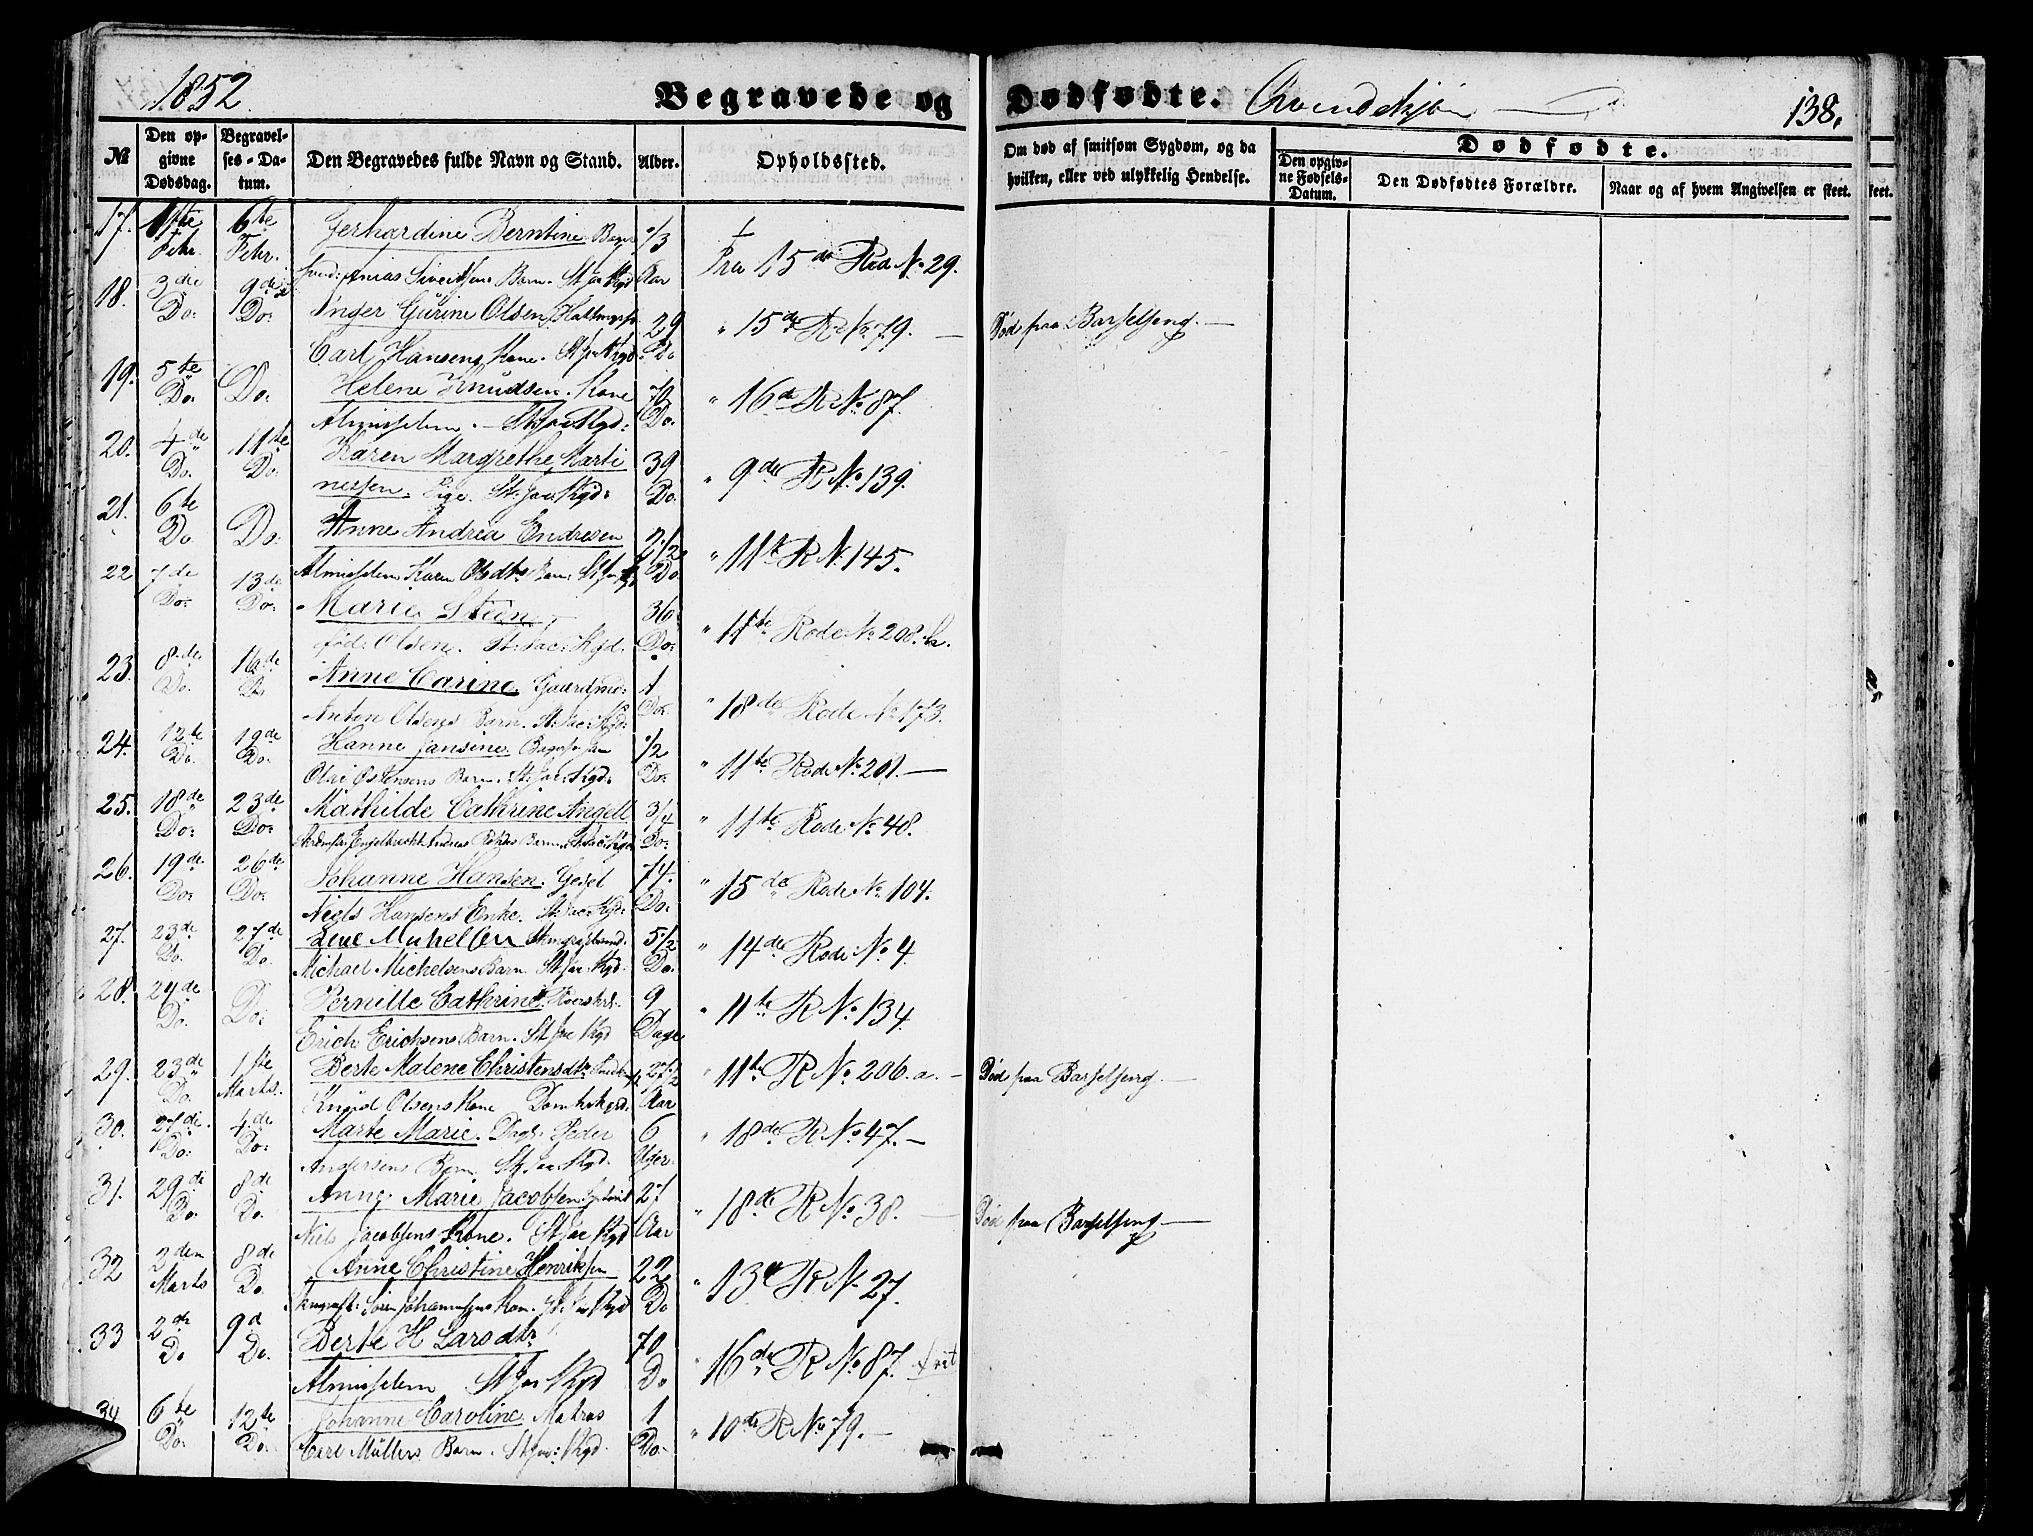 1852.
Begravede og Dødfødte. Qvindekjøn
138.
№
Den opgivne Dødsdag.
Begravelses-Datum.
Den Begravedes fulde Navn og Stand.
Alder.
Opholdssted.
Om død af smitsom Sygdom, og da hvilken, eller ved ulykkelig Hendelse.
Dødfødte.
Den opgivne Fødsels-Datum.
Den Dødfødtes Forældre.
Naar og af hvem Angivelsen er skeet.
skeet.
17. 1ste 6te Gerhardine Berntine. 1/3
Febr. Febr. Sivertsens Barn. St Jac Kgd Aar Fra 15de Rode No 29.
18. 3die 9de Inger Gurine Olsen, 29 " 15de R No 79. — Død paa Barselseng. —
Do. Do. Carl Hansens Kone. St Jac Kgd. Do
19. 5te Do. Helene Knudsen. Kone 70 " 16de R No 87.
Do. Almisselem. — St Jac Kgd: Do.
20. 4de 11te Karen Margrethe Marti 39 " 9de R No 139.
Do. Do. nessen. Pige. St: Jac Kgd: Do.
21. 6te Do. Anne Andrea Endresen 2 1/2 " 11te R No 145.
Do. Almisselem Karen Olsdtr Barn: St Jac Kgd Do.
22 7de 13de Marie Steen, 36 " 11te Rode No 208. b.
Do. Do. fød: Olsen. St: Jac: Kgd. Do.
23. 8de 16de Anne Carine. Gaardmd: 1 " 18de Rode No 173.
Do. Do Anton Olsens Barn. St. Jac: Kgd: Do.
24. 12te 19de Hanne Jansine. 1/2 " 11te Rode No 201. —
Do. Do. Olai Ostensens Barn. St: Jac: Kgd: Do.
25. 18de 23de Mathilde Cathrine Angell 3/4 " 11te Rode No 48.
Do: Do: Engelbrecht Andreas Barn. St Jac: Kgd Do:
26. 19de 26de Johanne Hansen. 74. " 15de Rode No 104.
Do: Do. Niels Hansens Enke. St: Jac: Kgd: Do.
27. 23de 27de Lene Michelsen 5 1/2 " 14de Rode No 4
Do. Do. Michael Michelsens Barn. St Jac. Kgd. Do.
28. 24de Do: Pernille Cathrine. 9 " 11te R No 134.
Do. Erich Erichsens Barn. St Jac Kgd Dage
29. 23de 1ste Berte Malene Christensdtr 27 1/2 " 11te R No 206. a. — Død paa Barselseng. —
Do. Marts. Knud Olsens Kone Domk Kgd. Aar
30. 27de 4de Marte Marie. Dagl. Peder 6 " 18de R No 47. —
Do: Do: Andersens Barn. St Jac Kgd. Uger.
31. 29de 8de Anne Marie Jacobsen. 27 " 18de R No 38. — Død paa Barselseng —
Do. Do. Niels Jacobsens Kone. St Jac Kgd Aar
32 2den 8de Anne Christine Henriksen 22 " 13de R No 27.
Marts Do. Søren Johannessens Kone. St: Jac Kgd Do
33 2de 9de Berte H Larsdtr 70 " 16de R No 87.
Do Do. Almisselem St Jac Kgd Do
34 6te 12te Johanne Caroline. Matros 1 " 10de R No 79. —
Do. Do. Carl Müllers Barn. St Jac: Kgd. Do.